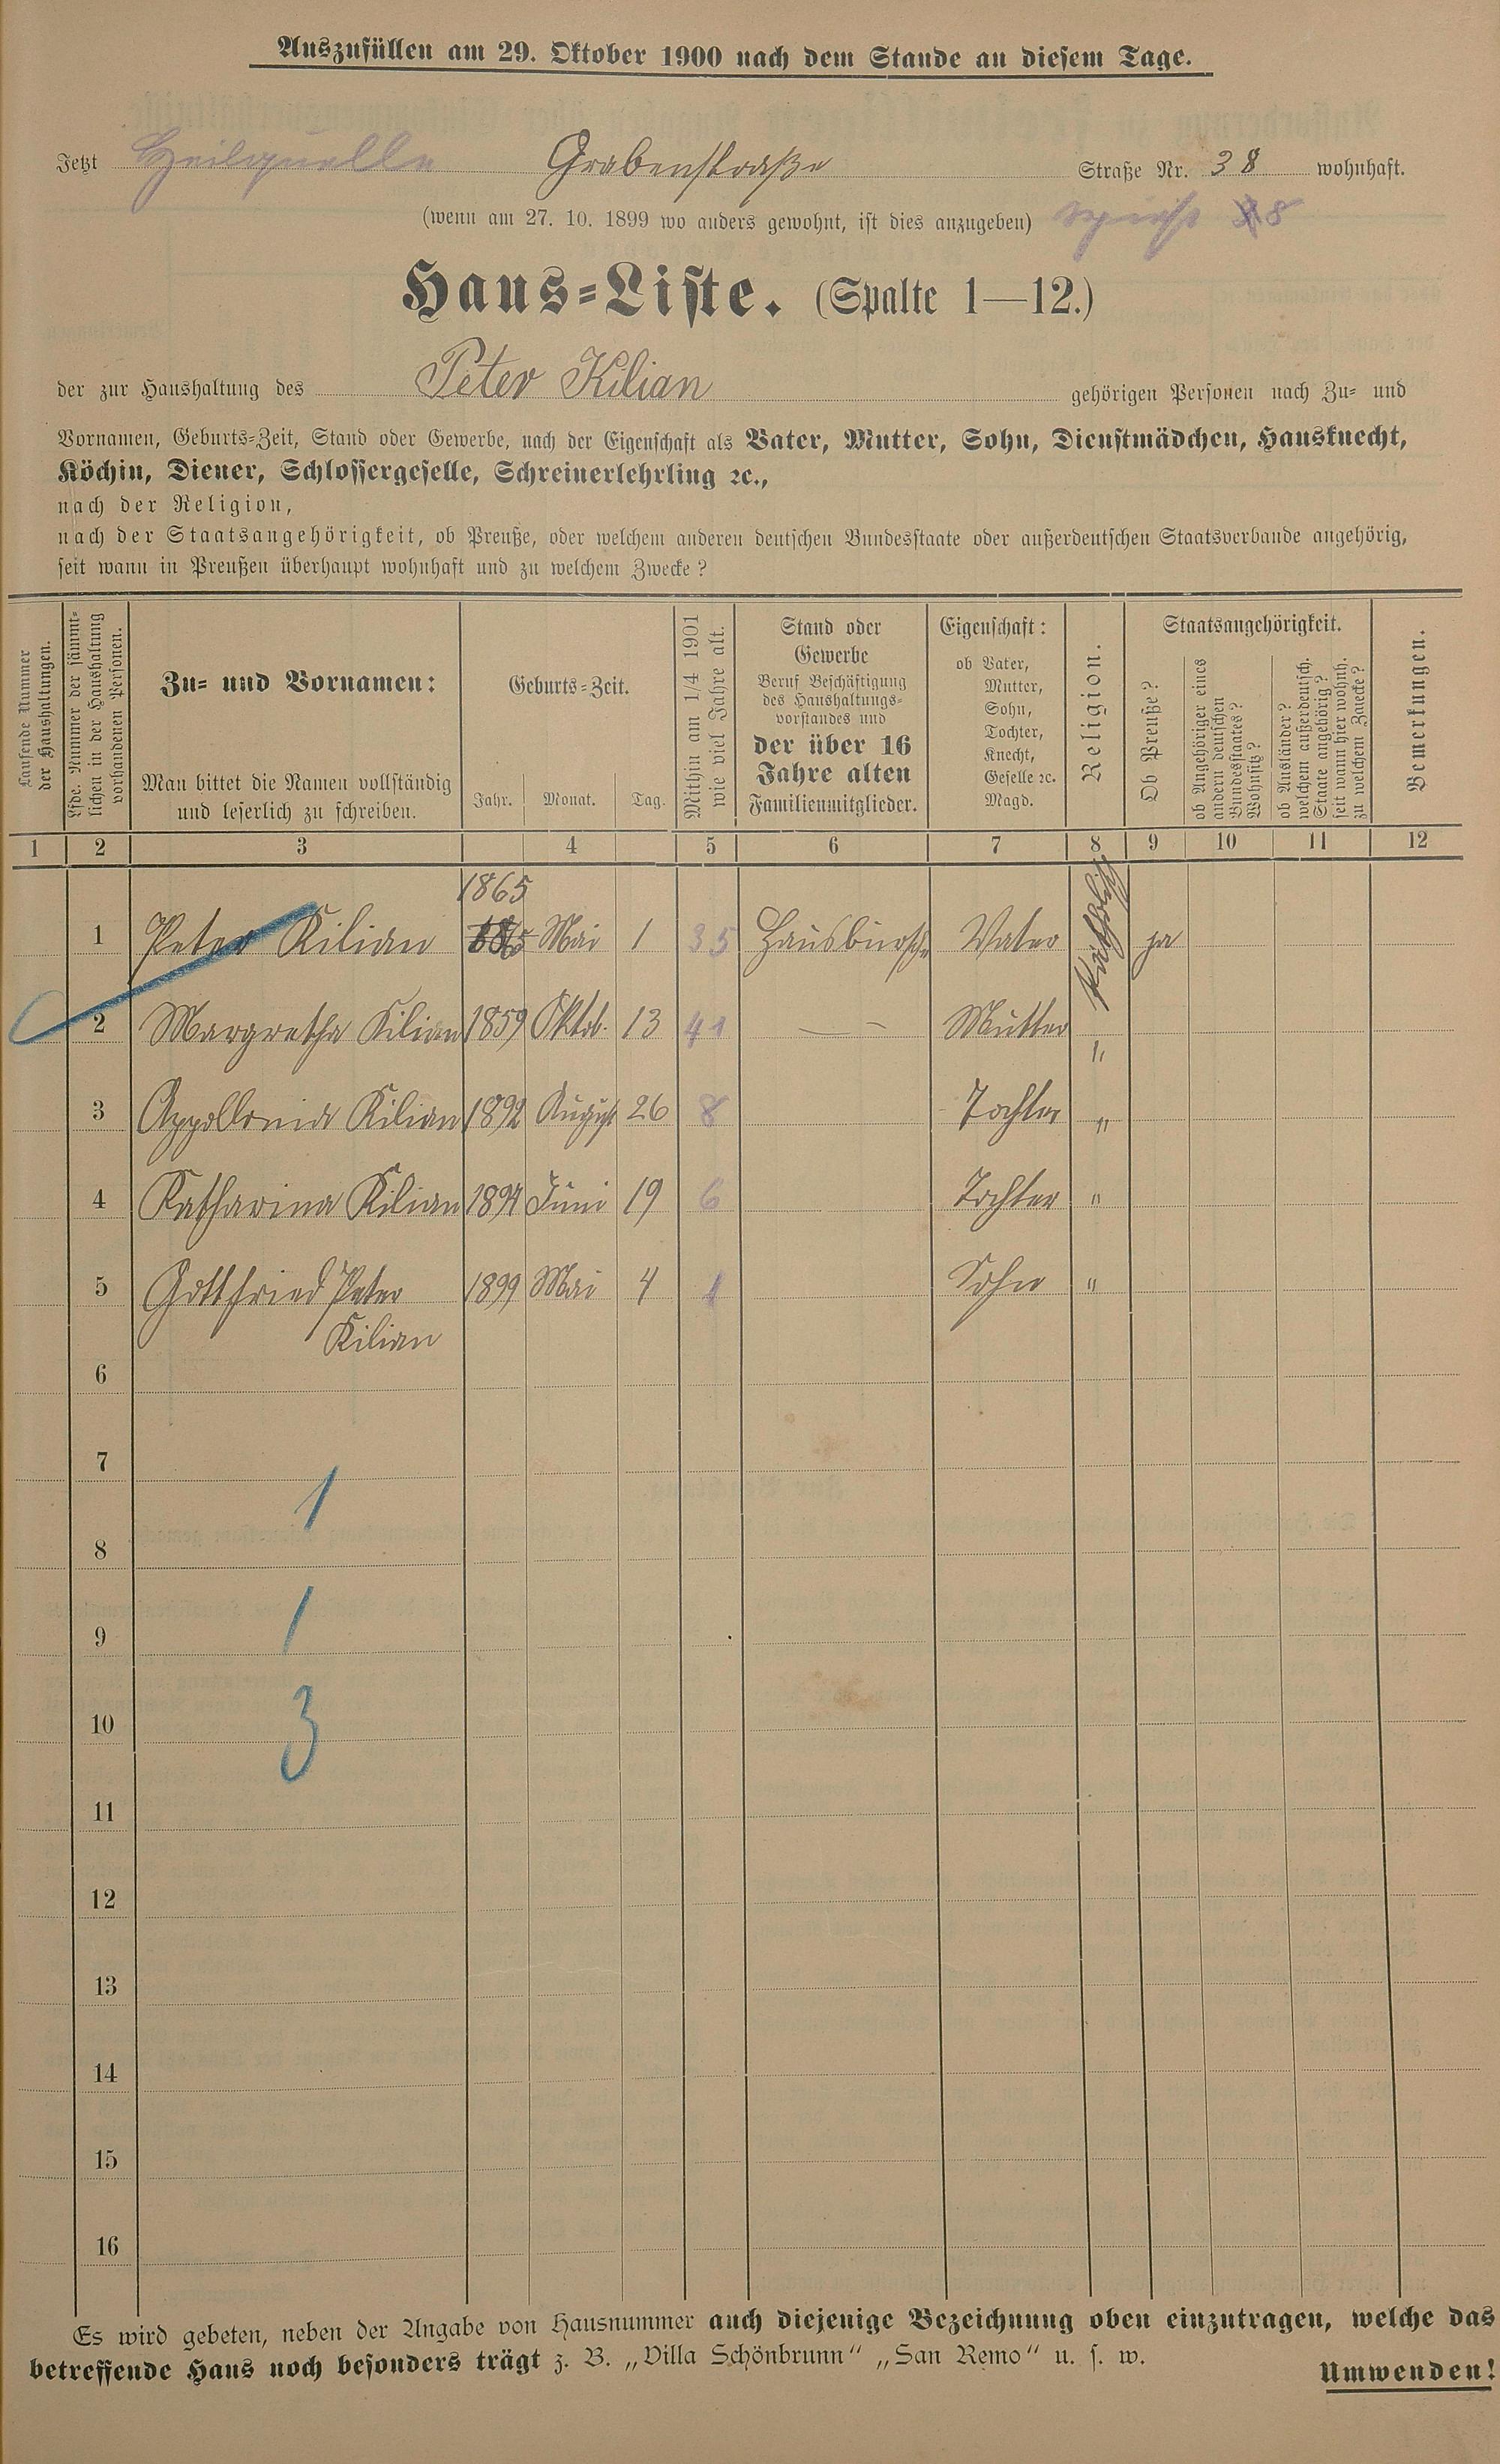 Auszufüllen am 29. Oktober 1900 nach dem Stande an diesem Tage.
Jetzt Heilquelle Grabenstraße Straße Nr. 38 wohnhaft.
(wenn am 27. 10. 1899 wo anders gewohnt, ist dies anzugeben) 8
Haus-Liste. (Spalte 1—12.)
der zur Haushaltung des Peter Kilian gehörigen Personen nach Zu- und
Vornamen, Geburts-Zeit, Stand oder Gewerbe, nach der Eigenschaft als Vater, Mutter, Sohn, Dienstmädchen, Hausknecht,
Köchin, Diener, Schlossergeselle, Schreinerlehrling ꝛc.,
nach der Religion,
nach der Staatsangehörigkeit, ob Preuße, oder welchem anderen deutschen Bundesstaate oder außerdeutschen Staatsverbande angehörig,
seit wann in Preußen überhaupt wohnhaft und zu welchem Zwecke?
Laufende Nummer
der Haushaltungen.
Lfde. Nummer der sämmt-
lichen in der Haushaltung
vorhandenen Personen.
Zu- und Vornamen:
Man bittet die Namen vollständig
und leserlich zu schreiben.
Geburts-Zeit.
Jahr. Monat. Tag.
Mithin am 1/4 1901
wie viel Jahre alt.
Stand oder
Gewerbe
Beruf Beschäftigung
des Haushaltungs-
vorstandes und
der über 16
Jahre alten
Familienmitglieder.
Eigenschaft:
ob Vater,
Mutter,
Sohn,
Tochter,
Knecht,
Geselle ꝛc.
Magd.
Religion.
Staatsangehörigkeit.
Ob Preuße?
ob Angehöriger eines
andern deutschen
Bundesstaates?
Wohnsitz?
ob Ausländer?
welchem außerdeutsch.
Staate angehörig?
seit wann hier wohnh.
zu welchem Zwecke?
Bemerkungen.
1 2 3 4 5 6 7 8 9 10 11 12
1865
1 Peter Kilian Mai 1 35 Hausbursche Vater Katholisch ja
2 Margretha Kilian 1859 Oktob. 13 41 — Mutter "
3 Appollonia Kilian 1892 August 26 8 Tochter "
4 Katharina Kilian 1894 Juni 19 6 Tochter "
5 Gottfried Peter 1899 Mai 4 1 Sohn "
Kilian
6
7
1
8
1
9
3
10
11
12
13
14
15
16
Es wird gebeten, neben der Angabe von Hausnummer auch diejenige Bezeichnung oben einzutragen, welche das
betreffende Haus noch besonders trägt z. B. „Villa Schönbrunn“ „San Remo“ u. s. w.
Umwenden!